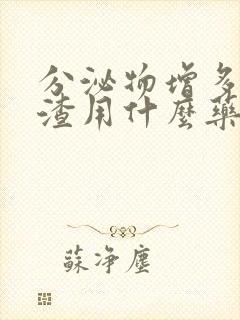 分泌物增多
渣用什麼藥
蘇净塵